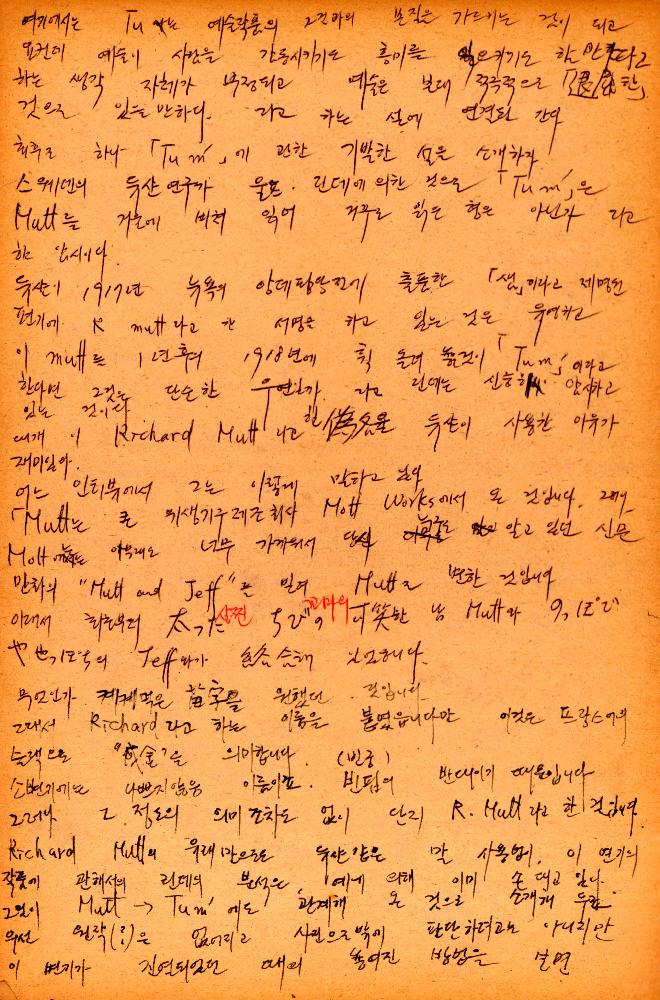 여기에서는 Tu m'는 예술작품의 2견마의 본질은 가르키는 것이 되고
요컨데 예술이 사람을 감동시키기도 흥미를 일으키기도 한 만하다고
하는 생각 자체가 부정되고 예술은 보다 적극적으로
것으로 있을 만하다. 라고 하는 설에 연결된 간다
최후로 하나 「Tu m'」에 관한 기발한 설은 소개하자
스웨덴의 뒤샹 연구가 울프. 린데에 의한 것으로 「Tu m'」은
Mutt를 거울에 비춰 읽어 거꾸로 읽은 형은 아닌가 라고
한 암시이다.
뒤샹이 1917년 뉴욕의 앙데팡당전에 출품한 「샘」이라고 제명된
변기에 R mutt라고 한 서명을 하고 있는 것은 유명하고
이 mutt를 1년후의 1918년에 휙 돌려 놓은것이 「Tu m'」이라고
한다면 그것은 단순한 우연인가 라고 린데는 암시하고
있는 것이다
대개 이 Richard Mutt라고 한 偽名을 뒤샹이 사용한 이유가
재미있다.
어느 인터뷰에서 그는 이렇게 말하고 있다
「Mutt는 큰 위생기구제조회사 Mott Works에서 온 것입니다. 그러나
Mott 아무래도 너무 가까워서 당시 알고 있던 신문
만화의 "Mutt and Jeff"를 빌려 Mutt로 변한 것입니다
이래서 최초부터 太った 살찐 ちびの 꼬마의 可笑한 남 Mutt와 のっぽで
やせっぽちの Jeff와가 結合해 있었습니다.
무엇인가 苗字를 원했던 것입니다
그래서 Richard라고 하는 이름을 붙였습니다만 이것은 프랑스어의
슬랭으로 "成金"을 의미합니다. (빈궁)
소변기에는 나쁘지않은 이름이고. 빈핍의 반대이기 때문입니다
그러나 그 정도의 의미조차도 없이 단지 R. Mutt라고 한 것입니다.
Richard Mutt의 유래만으로도 뒤샹같은 말 사용법이. 이 변기의
작품에 관해서의 린데의 분석은, 예에 의해 이미 손 대고 있다.
그것이 Mutt → Tu m'에도 관계해 온 것으로 소개해 두자
우선 원작(?)은 없어지고 사진으로밖에 판단하려고는 아니지만
이 변기가 진열되었던 때의 놓여진 방법을 보면